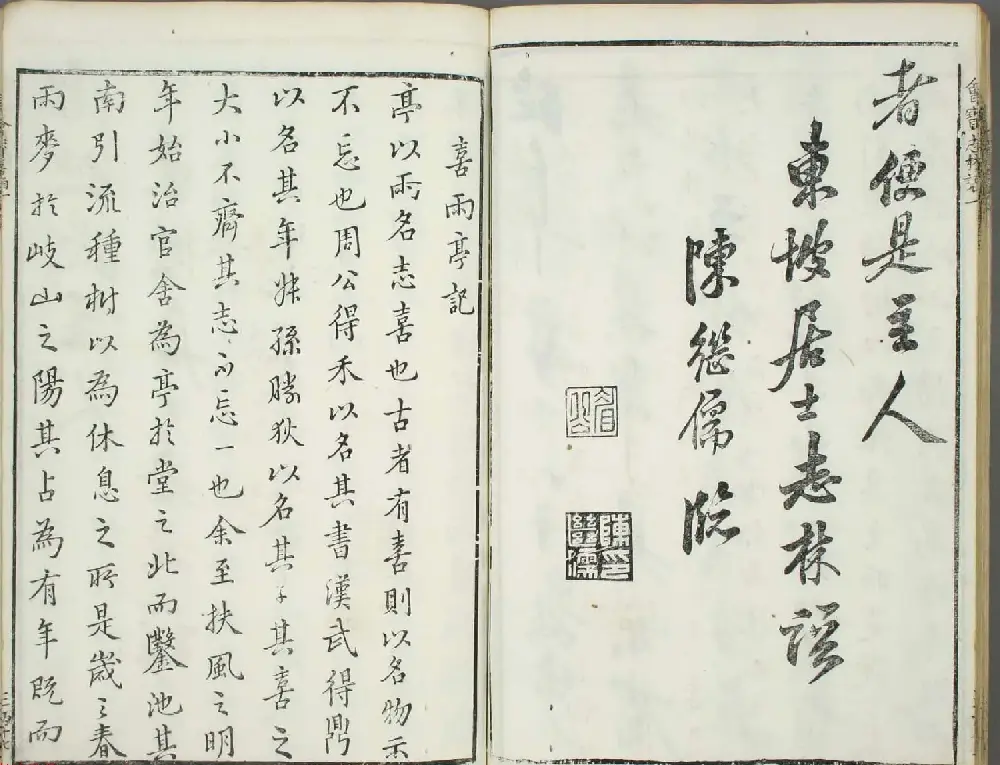 者便是主人
東坡居士志林
陳継儒臨
眉公
陳印繼儒
喜雨亭記
亭以雨名志喜也古者有喜則以名物示
不忘也周公得禾以名其書漢武得鼎
以名其年叔孫勝狄以名其子其喜之
大小不齊其志不忘一也余至扶風之明
年始治官舍為亭於堂之北而鑿池其
南引流種樹以為休息之所是歲之春
雨麥於岐山之陽其占為有年既而